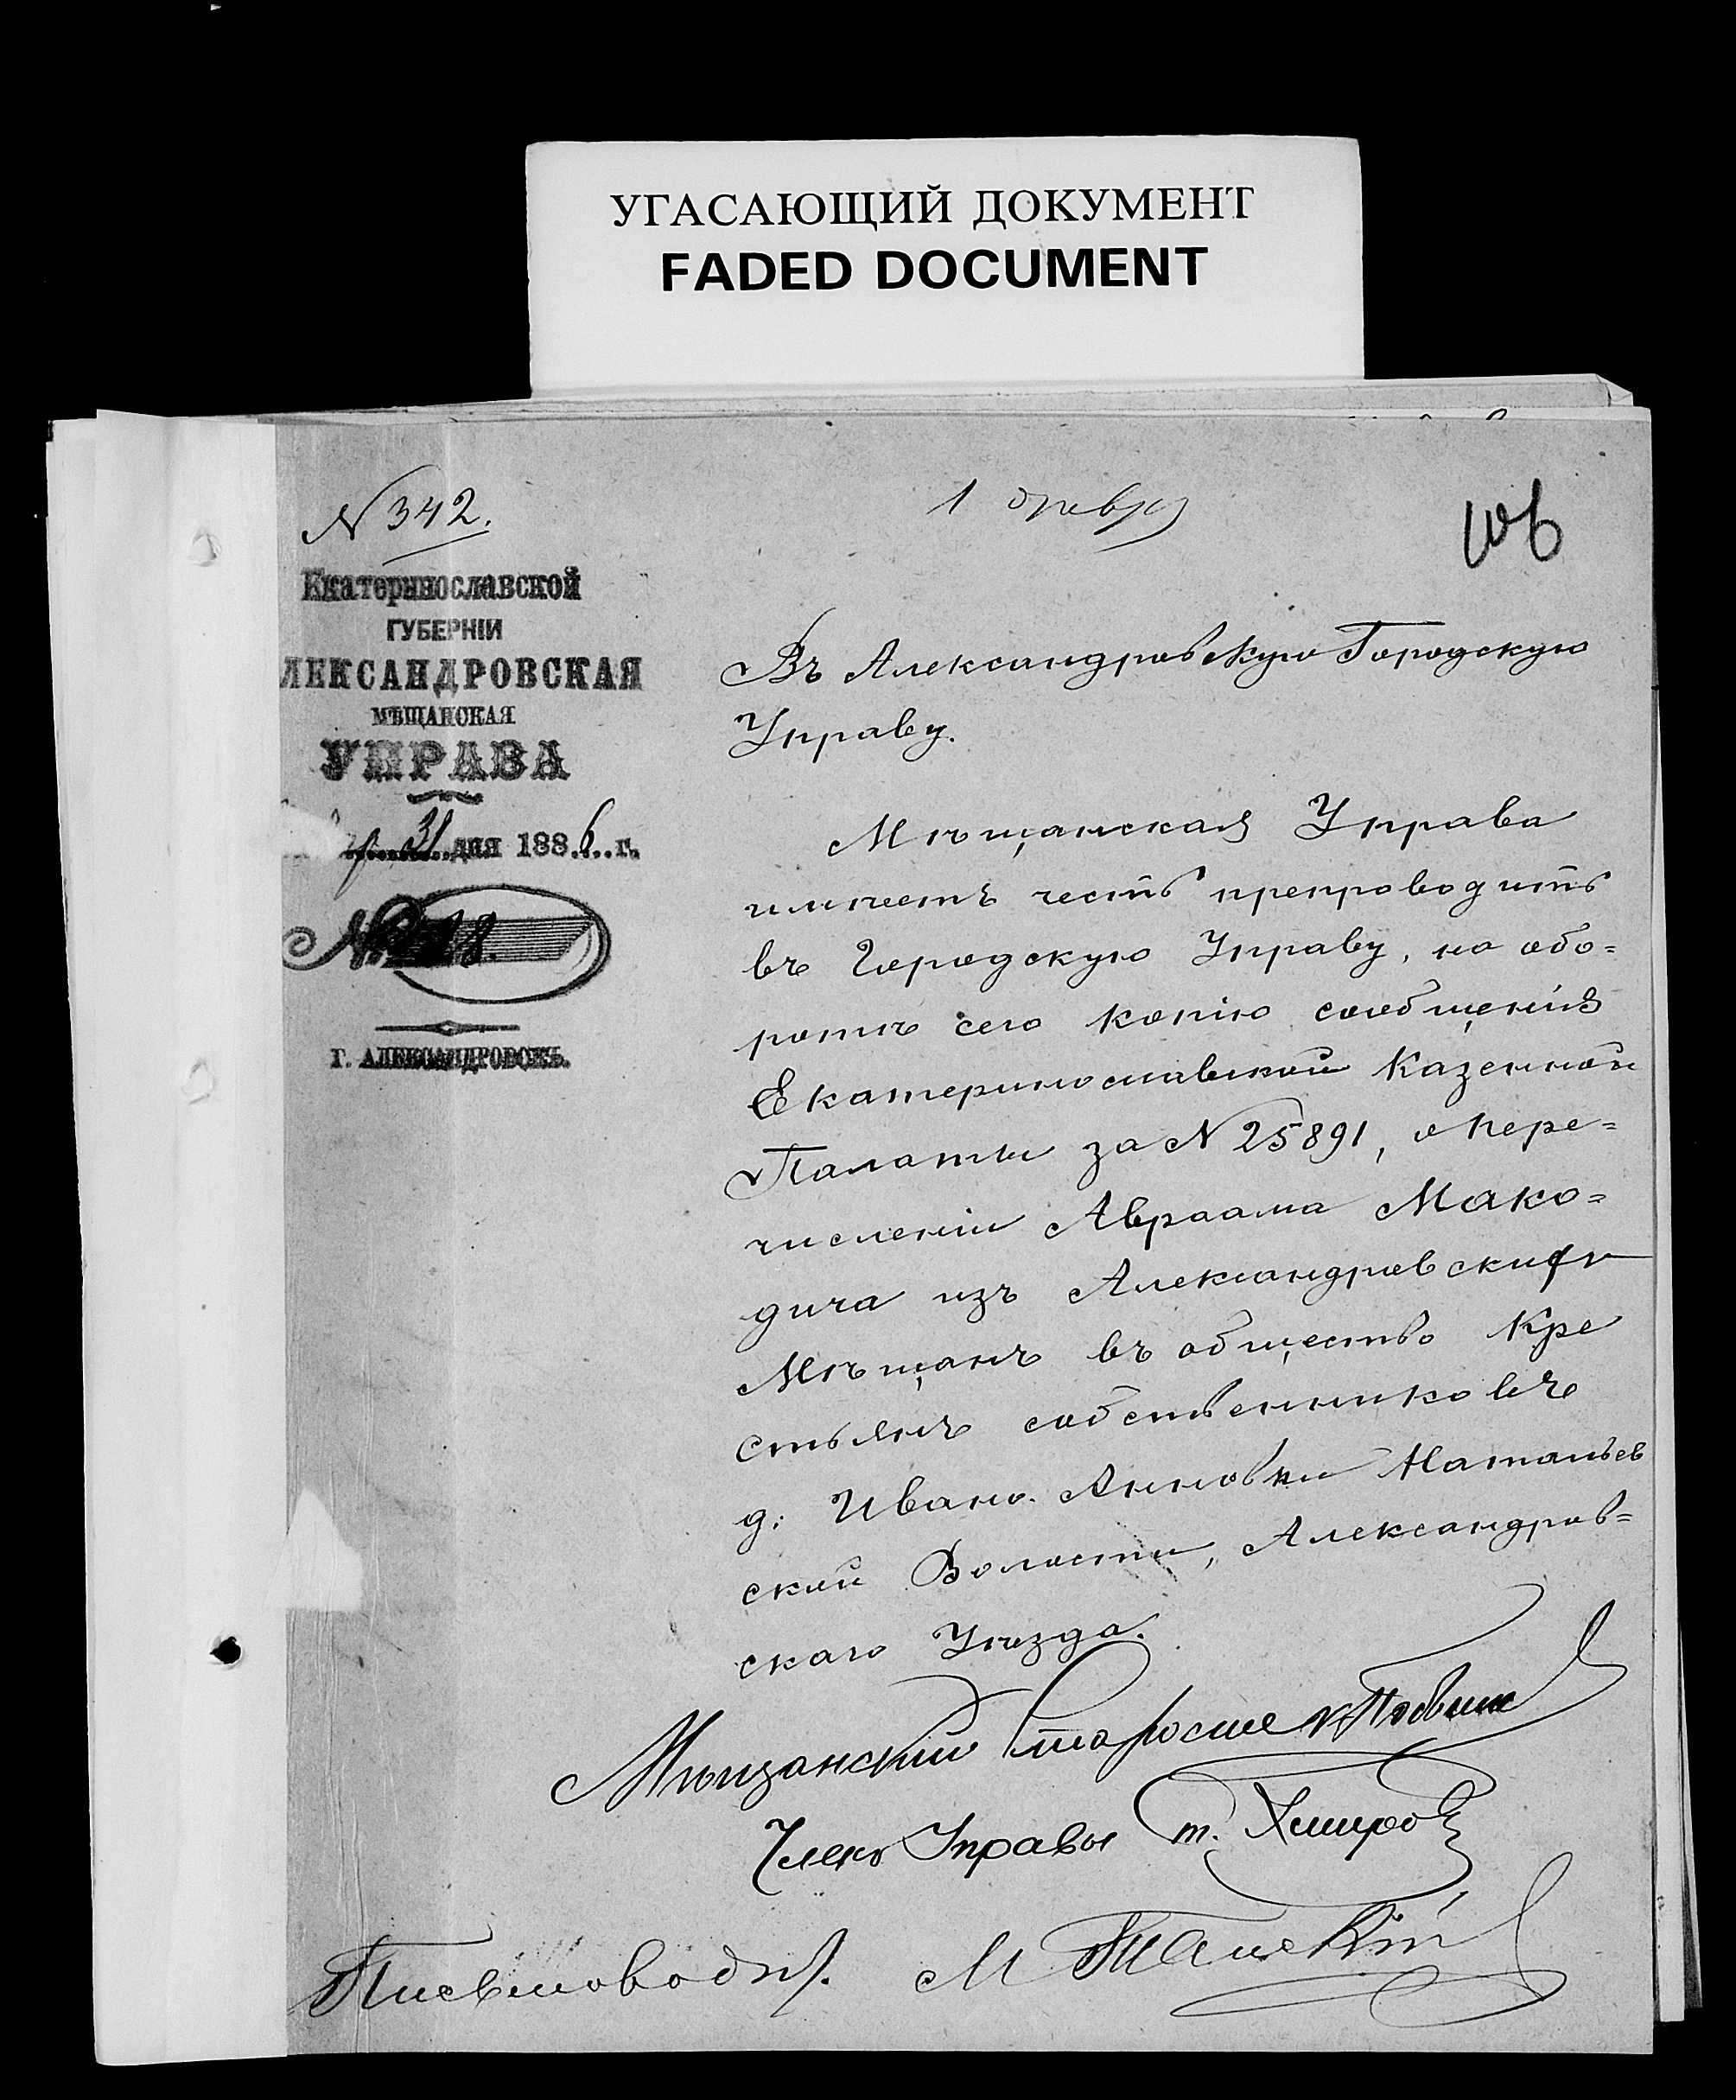 УГАСАЮЩИЙ ДОКУМЕНТ
FADED DOCUMENT
N 342.
1 февр
106
Екатеринославской
ГУБЕРНІИ
ЛЕКСАНДРОВСКАЯ
МѢЩАНСКАЯ
УПРАВА
31 дня 1886 г.
№ 8.
Г. АЛЕКСАНДРОВСКЪ.
Въ Александровскую Городскую
Управу.
Мѣщанская Управа
имѣетъ честь препроводить
въ Городскую Управу, на обо=
ротѣ сего копію сообщенія
Екатеринославской Казенной
Палаты за N 25891, о пере=
численіи Авраама Мако=
дича изъ Александровскихъ
Мѣщанъ въ общество Кре
стьянъ собственниковъ
д: Ивано. Анновки Натальев
ской Волости, Александров=
скаго Уѣзда.
Мѣщанскій Староста
Членъ Управы
Письмоводит.